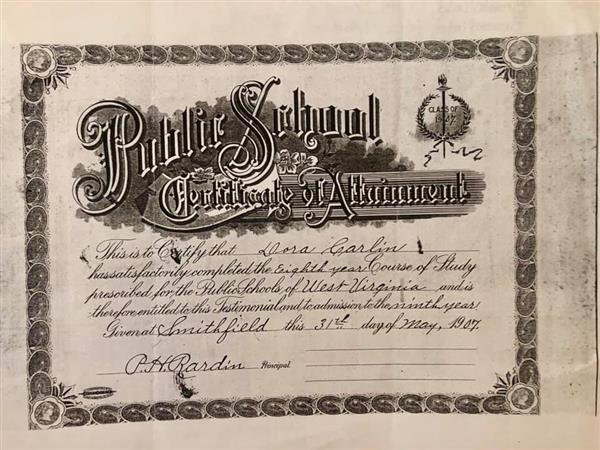 Public School
CLASS OF
1907
Certificate of Attainment
This is to Certify that Dora Carlin
has satisfactorily completed the Eighth year Course of Study
prescribed for the Public Schools of West Virginia and is
therefore entitled to this Testimonial and to admission to the ninth year.
Given at Smithfield this 31st day of May, 1907.
P. H. Rardin Principal